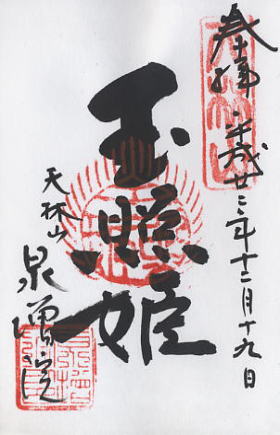 奉拝 平成廿三年十二月十九日
玉照姫
天林山
泉増院